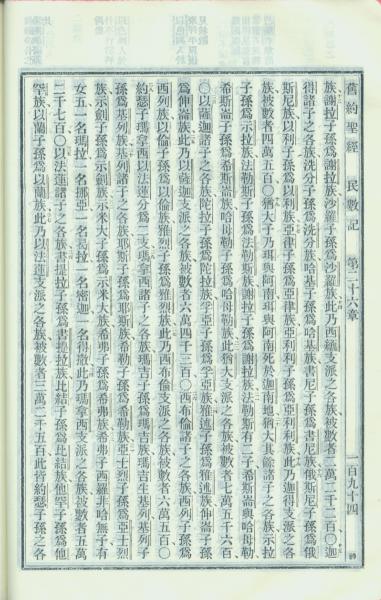 舊約聖經 民數記 第二十六章 一百九十四
族謝拉子孫爲謝拉族沙羅子孫爲沙羅族此乃西緬支派之各族被數者二萬二千二百〇迦
得諸子之各族洗分子孫爲洗分族哈基子孫爲哈基族書尼子孫爲書尼族俄斯尼子孫爲俄
斯尼族以利子孫爲以利族亞律子孫爲亞律族亞利利子孫爲亞利利族此乃迦得支派之各
族被數者四萬五百〇猶大子乃珥與阿南珥與阿南死於迦南地猶大其餘諸子之各族示拉
子孫爲示拉族法勒斯子孫爲法勒斯族謝拉子孫爲謝拉族法勒斯有二子希斯崙與哈母勒
希斯崙子孫爲希斯崙族哈母勒子孫爲哈母勒族此猶大支派之各族被數者七萬六千五百
〇以薩迦諸子之各族陀拉子孫爲陀拉族孚亞子孫爲孚亞族雅述子孫爲雅述族伸崙子孫
爲伸崙族此乃以薩迦支派之各族被數者六萬四千三百〇西布倫諸子之各族西列子孫爲
西列族以倫子孫爲以倫族雅烈子孫爲雅烈族此乃西布倫支派之各族被數者六萬五百〇
約瑟子瑪拿西以法蓮分爲二支瑪拿西諸子之各族瑪吉子孫爲瑪吉族瑪吉生基列基列子
孫爲基列族基列諸子之各族耶斯子孫爲耶斯族希勒子孫爲希勒族亞士烈子孫爲亞士烈
族示劍子孫爲示劍族示米大子孫爲示米大族希弗子孫爲希弗族希弗子西羅非哈無子有
女五一名瑪拉一名挪亞一名曷拉一名密迦一名得撒此乃瑪拿西支派之各族被數者五萬
二千七百〇以法蓮諸子之各族書提拉子孫爲書提拉族比結子孫爲比結族他罕子孫爲他
罕族以蘭子孫爲以蘭族此乃以法蓮支派之各族被數者三萬二千五百此皆約瑟子孫之各